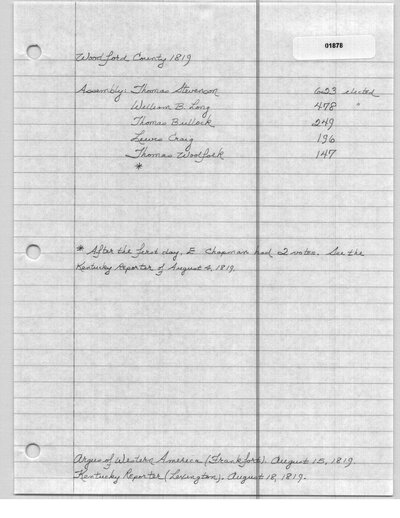 01878
Woodford County 1819
Assembly: Thomas Stevenson 623 elected
William B. Long 478 "
Thomas Bullock 249
Lewis Craig 196
Thomas Woolfolk 147
*
* After the first day, E Chapman had 2 votes. See the
Kentucky Reporter of August 4, 1819.
Argus of Western America (Frankfort). August 13, 1819.
Kentucky Reporter (Lexington). August 18, 1819.